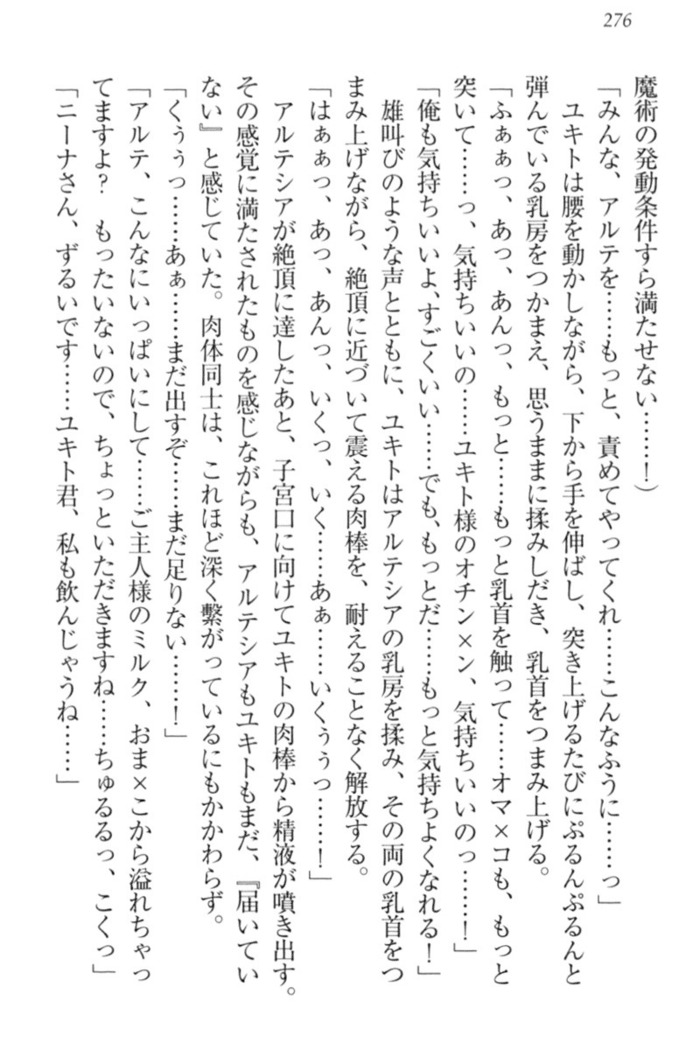 276
魔術の発動条件すら満たせない……！）
「みんな、アルテを……もっと、責めてやってくれ……こんなふうに……っ」
　ユキトは腰を動かしながら、下から手を伸ばし、突き上げるたびにぷるんぷるんと
弾んでいる乳房をつかまえ、思うままに揉みしだき、乳首をつまみ上げる。
「ふぁぁっ、あっ、あんっ、もっと……もっと乳首を触って……オマ×コも、もっと
突いて……っ、気持ちいいの……ユキト様のオチン×ン、気持ちいいのっ……！」
「俺も気持ちいいよ、すごくいい……でも、もっとだ……もっと気持ちよくなれる！」
　雄叫びのような声とともに、ユキトはアルテシアの乳房を揉み、その両の乳首をつ
まみ上げながら、絶頂に近づいて震える肉棒を、耐えることなく解放する。
「はぁぁっ、あっ、あんっ、いくっ、いく……あぁ……いくぅぅっ……！」
　アルテシアが絶頂に達したあと、子宮口に向けてユキトの肉棒から精液が噴き出す。
その感覚に満たされたものを感じながらも、アルテシアもユキトもまだ、『届いてい
ない』と感じていた。肉体同士は、これほど深く繋がっているにもかかわらず。
「くぅぅっ……あぁ……まだ出すぞ……まだ足りない……！」
「アルテ、こんなにいっぱいにして……ご主人様のミルク、おま×こから溢れちゃっ
てますよ？　もったいないので、ちょっといただきますね……ちゅるるっ、こくっ」
「ニーナさん、ずるいです……ユキト君、私も飲んじゃうね……」